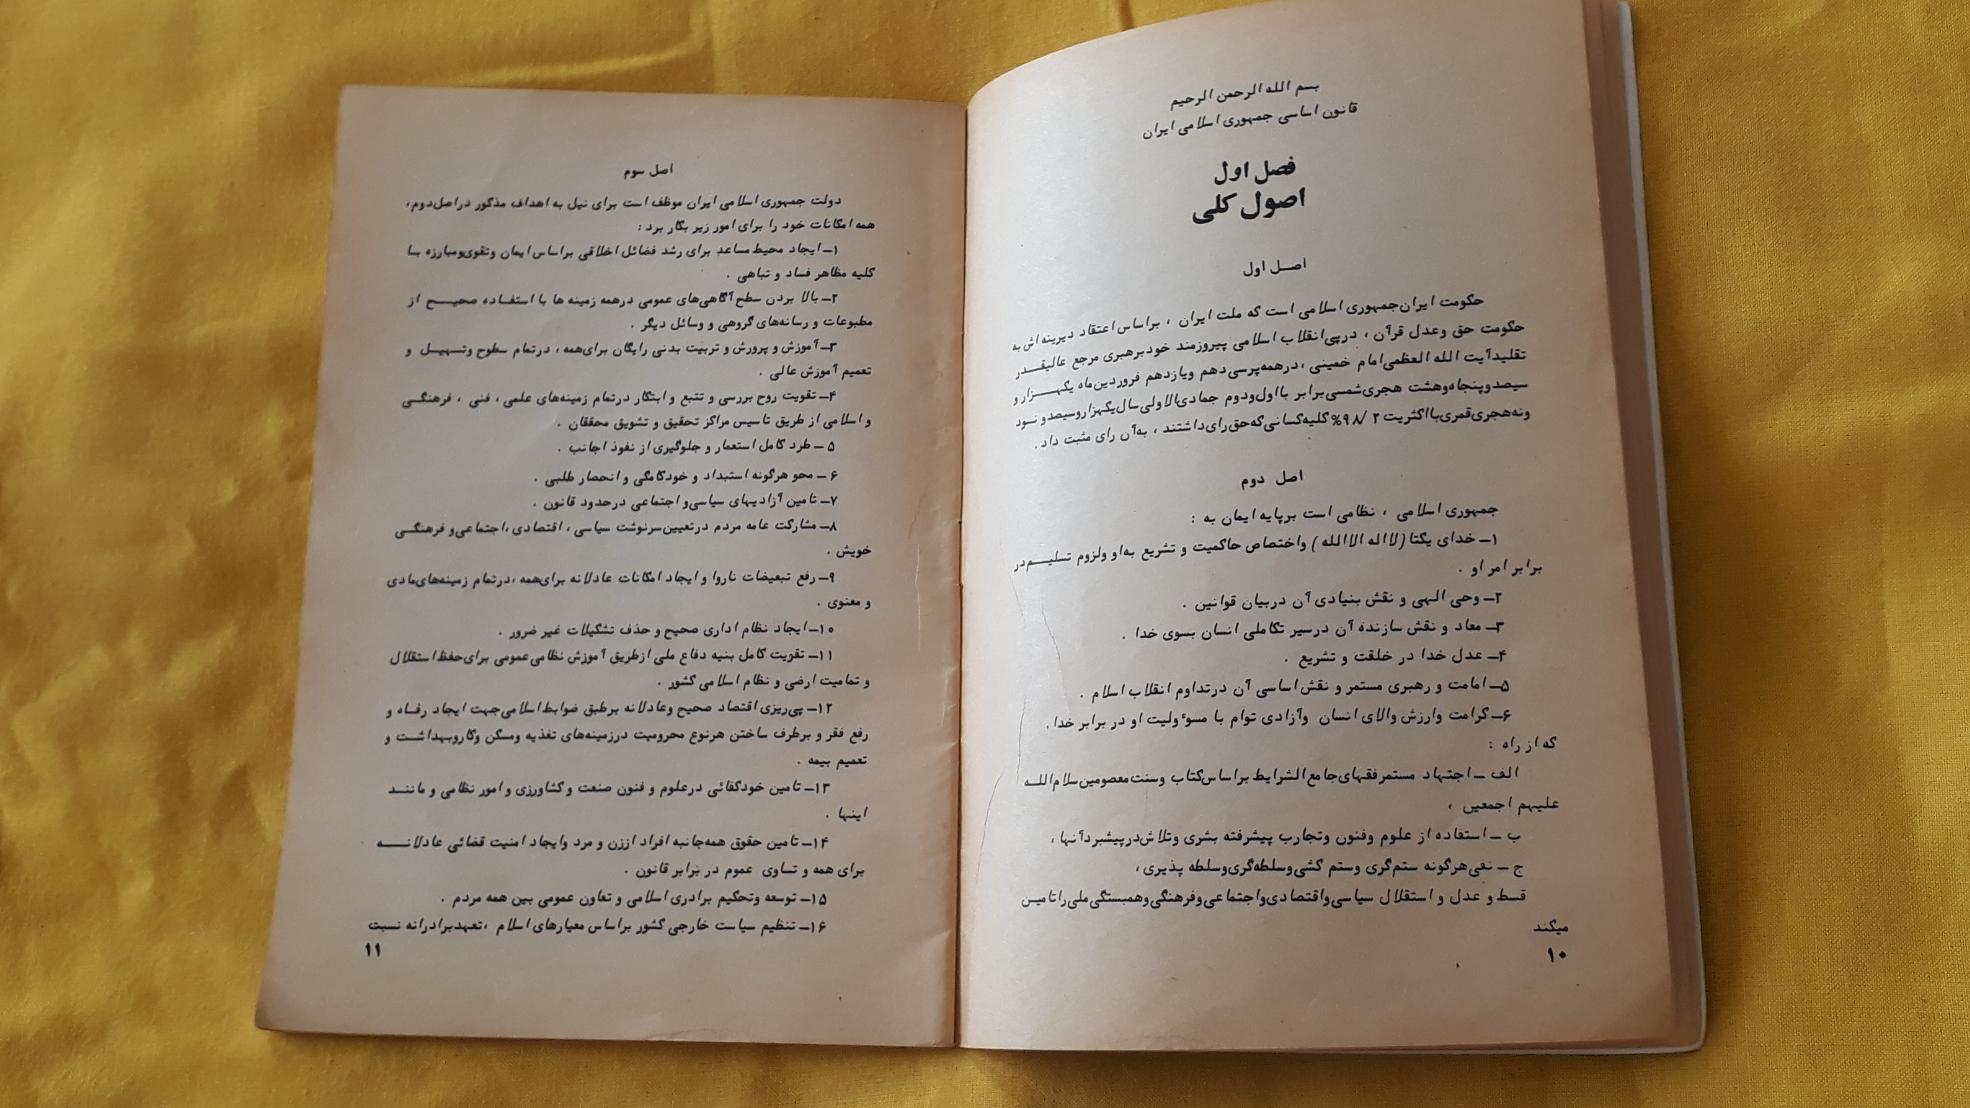 بسم الله الرحمن الرحیم
قانون اساسی جمهوری اسلامی ایران
فصل اول
اصول کلی
اصل اول
حکومت ایران جمهوری اسلامی است که ملت ایران ، براساس اعتقاد دیرینه اش به
حکومت حق وعدل قرآن ، درپی انقلاب اسلامی پیروزمند خود برهبری مرجع عالیقدر
تقلید آیت الله العظمی امام خمینی ، درهمه پرسی دهم ویازدهم فروردین ماه یکهزار و
سیصدو پنجاه وهشت هجری شمسی برابر با اول ودوم جمادی الاولی سال یکهزار وسیصد و نود
ونه هجری قمری با اکثریت ۹۸/۲% کلیه کسانی که حق رای داشتند ، به آن رای مثبت داد .
اصل دوم
جمهوری اسلامی ، نظامی است برپایه ایمان به :
۱ــ خدای یکتا ( لا اله الا الله ) واختصاص حاکمیت و تشریع به او ولزوم تسلیم در
برابر امر او .
۲ــ وحی الهی و نقش بنیادی آن دربیان قوانین .
۳ــ معاد و نقش سازنده آن درسیر تکاملی انسان بسوی خدا .
۴ــ عدل خدا در خلقت و تشریع .
۵ــ امامت و رهبری مستمر و نقش اساسی آن درتداوم انقلاب اسلام .
۶ــ کرامت وارزش والای انسان وآزادی توام با مسوءولیت او در برابر خدا .
که از راه :
الف ــ اجتهاد مستمر فقهای جامع الشرایط براساس کتاب وسنت معصومین سلام الله
علیهم اجمعین ،
ب ــ استفاده از علوم وفنون وتجارب پیشرفته بشری وتلاش درپیشبرد آنها ،
ج ــ نفی هرگونه ستم گری وستم کشی وسلطه گری وسلطه پذیری ،
قسط و عدل و استقلال سیاسی واقتصادی واجتماعی وفرهنگی وهمبستگی ملی را تامین
میکند
۱۰
اصل سوم
دولت جمهوری اسلامی ایران موظف است برای نیل به اهداف مذکور دراصل دوم ،
همه امکانات خود را برای امور زیر بکار برد :
۱ــ ایجاد محیط مساعد برای رشد فضائل اخلاقی براساس ایمان وتقوی ومبارزه با
کلیه مظاهر فساد و تباهی .
۲ــ بالا بردن سطح آگاهی‌های عمومی درهمه زمینه ها با استفاده صحیح از
مطبوعات و رسانه‌های گروهی و وسائل دیگر .
۳ــ آموزش و پرورش و تربیت بدنی رایگان برای همه ، درتمام سطوح وتسهیل و
تعمیم آموزش عالی .
۴ــ تقویت روح بررسی و تتبع و ابتکار درتمام زمینه‌های علمی ، فنی ، فرهنگی
و اسلامی از طریق تاسیس مراکز تحقیق و تشویق محققان .
۵ ــ طرد کامل استعمار و جلوگیری از نفوذ اجانب .
۶ ــ محو هرگونه استبداد و خودکامگی و انحصار طلبی .
۷ــ تامین آزادیهای سیاسی و اجتماعی درحدود قانون .
۸ــ مشارکت عامه مردم درتعیین سرنوشت سیاسی ، اقتصادی ، اجتماعی و فرهنگی
خویش .
۹ــ رفع تبعیضات ناروا و ایجاد امکانات عادلانه برای همه ، درتمام زمینه‌های مادی
و معنوی .
۱۰ــ ایجاد نظام اداری صحیح و حذف تشکیلات غیر ضرور .
۱۱ــ تقویت کامل بنیه دفاع ملی ازطریق آموزش نظامی عمومی برای حفظ استقلال
و تمامیت ارضی و نظام اسلامی کشور .
۱۲ــ پی‌ریزی اقتصاد صحیح وعادلانه برطبق ضوابط اسلامی جهت ایجاد رفاه و
رفع فقر و برطرف ساختن هرنوع محرومیت درزمینه‌های تغذیه ومسکن وکاروبهداشت و
تعمیم بیمه .
۱۳ــ تامین خودکفائی درعلوم و فنون صنعت و کشاورزی و امور نظامی و مانند
اینها .
۱۴ــ تامین حقوق همه جانبه افراد اززن و مرد وایجاد امنیت قضائی عادلانه
برای همه و تساوی عموم در برابر قانون .
۱۵ــ توسعه وتحکیم برادری اسلامی و تعاون عمومی بین همه مردم .
۱۶ــ تنظیم سیاست خارجی کشور براساس معیارهای اسلام ، تعهد برادرانه نسبت
۱۱